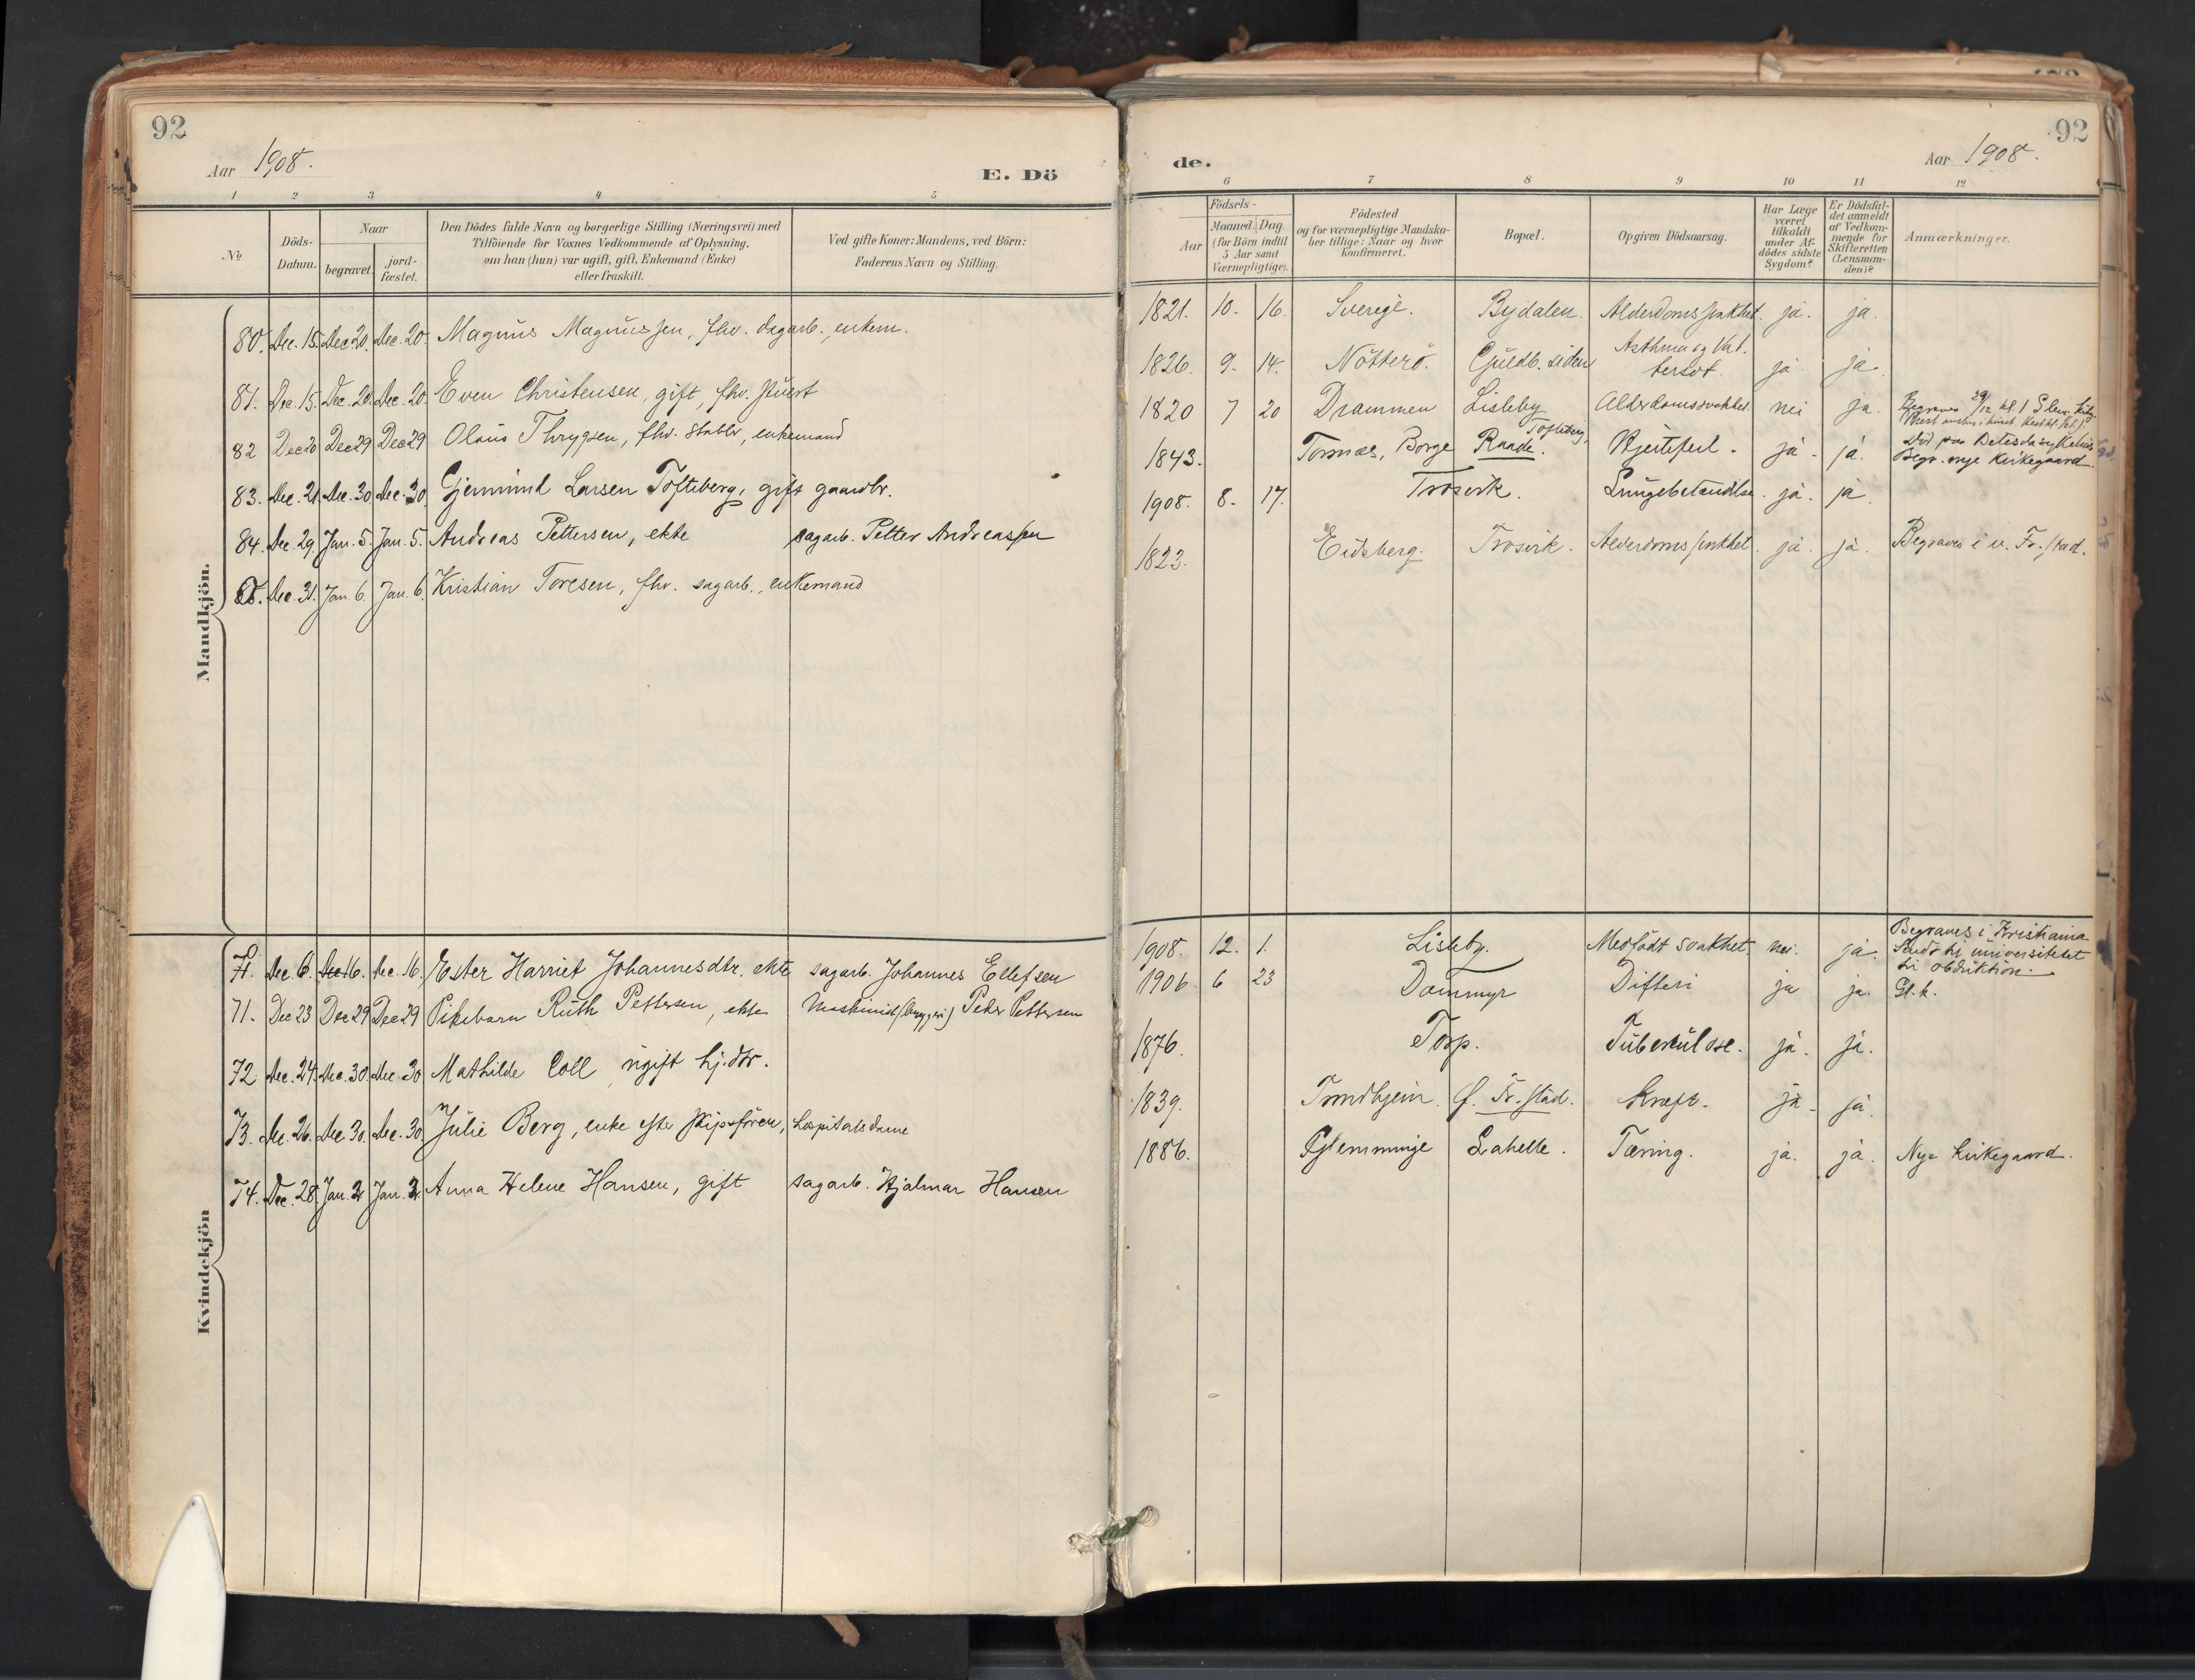 92
Aar 1908.
E. Dö
1 2 3 4 5
№
Döds-
Datum.
Naar
begravet.
jord-
fæstet.
Den Dödes fulde Navn og borgerlige Stilling (Næringsvei) med
Tilföiende for Voxnes Vedkommende af Oplysning,
om han (hun) var ugift, gift, Enkemand (Enke)
eller fraskilt.
Ved gifte Koner: Mandens, ved Börn:
Faderens Navn og Stilling.
Mandkjön.
80. Dec. 15. Dec 20. Dec. 20. Magnus Magnussen, fhv. dagarb., enkem.
81. Dec. 15. Dec. 20. Dec. 20. Even Christensen, gift, fhv.
82 Dec 20 Dec 29 Dec 29 Olaus Thrygsen, fhv. stabler, enkemand
83. Dec. 21. Dec. 30 Dec. 30. Gjermund Larsen Tofteberg, gift gaardbr.
84. Dec. 29. Jan. 5. Jan. 5. Andreas Pettersen, ekte sagarb. Petter Andreassen
85. Dec. 31. Jan. 6. Jan. 6. Kristian Toresen, fhv. sagarb., enkemand
Kvindekjön
Dec. 6. Dec. 16. Dec. 16. Ester Harriet Johannesdtr. ekte sagarb. Johannes Ellefsen
71. Dec 23 Dec 29 Dec 29 Pikebarn Ruth Pettersen, ekte Maskinist (bryggeri) Peder Pettersen
72. Dec. 24. Dec. 30. Dec. 30 Mathilde Coll ugift hj. dtr.
73. Dec. 26. Dec. 30. Dec. 30. Julie Berg, enke efter skipsfører, Hospitalsdame
74. Dec. 28. Jan. 2. Jan. 2. Anna Helene Hansen, gift sagarb. Hjalmar Hansen
92
de.
Aar 1908.
6 7 8 9 10 11 12
Födsels-
Aar
Maaned. Dag.
(for Börn indtil
5 Aar samt
Værnepligtige).
Födested
og for værnepligtige Mandska-
ber tillige: Naar og hvor
Konfirmeret.
Bopæl.
Opgiven Dödsaarsag.
Har Læge
været
tilkaldt
under Af-
dödes sidste
Sygdom?
Er Dödsfal-
det anmeldt
af Vedkom-
mende for
Skifteretten
(Lensman-
den)?
Anmærkninger.
1821. 10. 16. Sverige. Bydalen. Alderdomssvakhet. ja. ja.
1826. 9. 14. Nötterö. Guldb. siden Asthma og Vat-
tersot. ja ja.
1820 7 20 Drammen Lisleby Alderdomssvakhet. nei ja. Begraves 29/12 kl. 1
1843. Tornæs, Borge Tofteberg, Raade. Hjertefeil. ja. ja. Död paa Betesda sykehus
Begr. nye Kirkegaard.
1908. 8. 17. Trosvik. Lungebetændelse. ja. ja
1823. Eidsberg. Trosvik. Alderdomssvakhet. ja. ja. Begraves i v. Fr.stad.
1908. 12. 1. Lisleby. Medfödt svakhet. nei. ja. Begraves i Kristiania
Sendt til universitetet
til obduktion.
1906 6 23 Dammyr Difteri ja ja. Gl. k.
1876. Torp. Tuberkulose. ja. ja.
1839. Trondhjem. Ø. Fr.stad. Kræft. ja. ja.
1886. Glemminge Lahelle. Tæring. ja. ja. Nye kirkegaard.